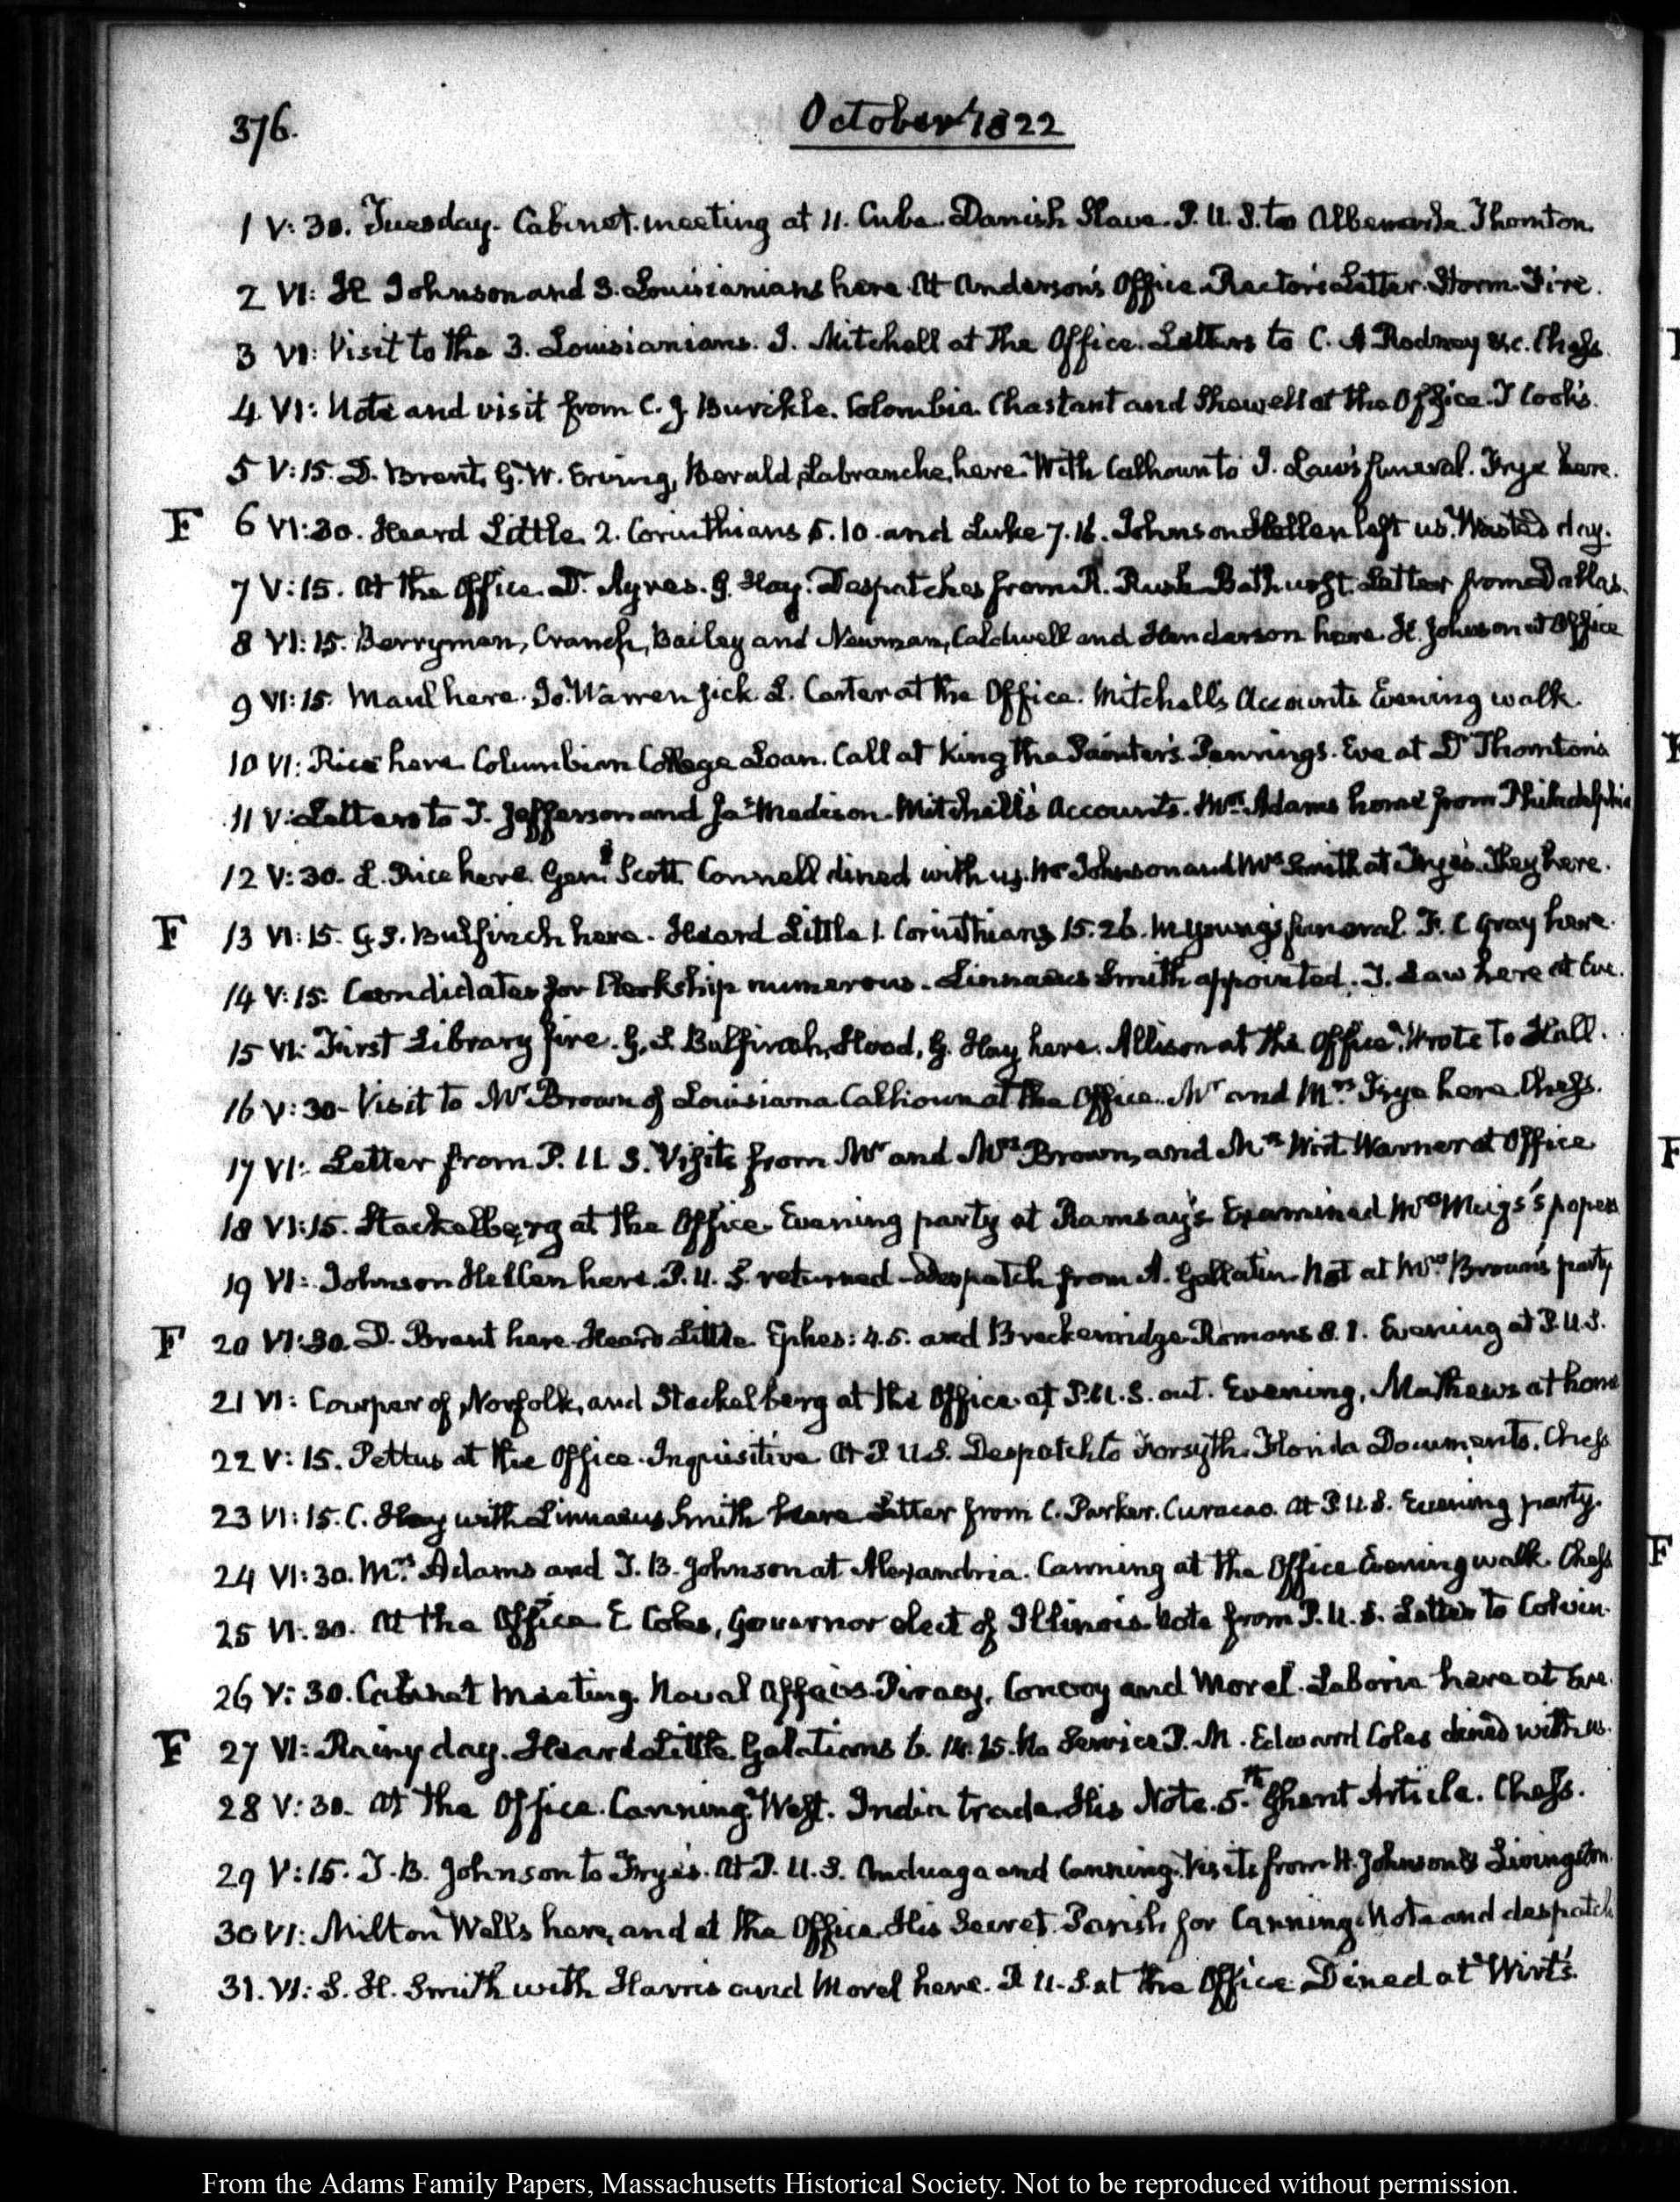 376.
October 1822
1 V: 30. Tuesday. Cabinet meeting at 11. Cuba. Danish Slave. P. U. S. to Albemarle. Thornton.
2 VI: H Johnson and 3. Louisianians here. At Anderson's Office. Rector's Letter. Storm. Fire.
3 VI: Visit to the 3. Louisianians. J. Mitchell at the Office. Letters to C. A Rodney &c. Chess.
4 VI: Note and visit from C. J Burckle. Colombia. Chastant and Showell at the Office. T Cook's.
5 V: 15. D. Brent, G. W. Erving, Labranche, here. With Calhoun to J. Law's funeral. Frye here.
F 6 VI: 30. Heard Little. 2. Corinthians 5. 10. and Luke 7. 16. Johnson Hellen left us. Wasted day.
7 V: 15. At the Office. Dr. Ayres. G. Hay. Despatches from R. Rush. Bathurst. Letter from Dallas.
8 VI: 15. Berryman, Cranch, Bailey and Newman, Caldwell and Henderson here. H. Johnson at Office
9 VI: 15. Maul here. Jo. Warren sick. L. Carter at the Office. Mitchell's Accounts. Evening walk.
10 VI: Rice here. Columbian College Loan. Call at King the Painter's. Eve at Dr Thornton's
11 V: Letters to T. Jefferson and Jas Madison. Mitchell's Accounts. Mrs. Adams home from Philadelphia
12 V: 30. L. Rice here. Genl Scott. Connell dined with us. Mr Johnson and Mrs Smith at Frye's. They here.
F 13 VI: 15. G. S. Bulfinch here. Heard Little 1. Corinthians 15. 26. M Young's funeral. F. C Gray here.
14 V: 15. Candidates for Clerkship numerous. Linnaeus Smith appointed. T. Law here at Eve.
15 VI: First Library fire. G. S. Bulfinch, Hood, G. Hay here. Allison at the Office. Wrote to Hall.
16 V: 30. Visit to Mr Brown of Louisiana. Calhoun at the Office. Mr and Mrs Frye here. Chess.
17 VI: Letter from P. U. S. Visits from Mr and Mrs Brown, and Mrs Wirt. Warner at Office
18 VI: 15. Stackelberg at the Office. Evening party at Ramsay's. Examined Mrs Meigs's papers
19 VI: Johnson Hellen here. P. U. S. returned. Despatch from A. Gallatin. Not at Mrs Brown's party
F 20 VI: 30. D. Brent here. Heard Little. Ephes: 4. 5. and Breckenridge Romans 8. 1. Evening at P. U. S.
21 VI: Cowper of Norfolk, and Stackelberg at the Office. at P. U. S. out. Evening, Mathews at home
22 V: 15. Pettus at the Office. Inquisitive. At P. U. S. Despatch to Forsyth. Florida Documents. Chess
23 VI: 15. C. Hay with Linnaeus Smith here. Letter from C. Parker. Curacao. At P. U. S. Evening party.
24 VI: 30. Mrs. Adams and T. B. Johnson at Alexandria. Canning at the Office. Evening walk. Chess
25 VI: 30. At the Office. E Coles, Governor elect of Illinois. Note from P. U. S. Letter to Colvin.
26 V: 30. Cabinet Meeting. Naval Affairs. Piracy, Convoy and Morel. Laborie here at Eve.
F 27 VI: Rainy day. Heard Little. Galatians 6. 14. 15. No Service P. M. Edward Coles dined with us.
28 V: 30. At the Office. Canning. West. India trade. His Note. 5.th Ghent Article. Chess.
29 V: 15. T. B. Johnson to Frye's. At P. U. S. Anduaga and Canning. Visits from H. Johnson & Livingston.
30 VI: Milton Wells here, and at the Office. His Secret. Parish for Canning's Note and despatch
31. VI: S. H. Smith with Harris and Morel here. P. U. S. at the Office. Dined at Wirt's.
From the Adams Family Papers, Massachusetts Historical Society. Not to be reproduced without permission.